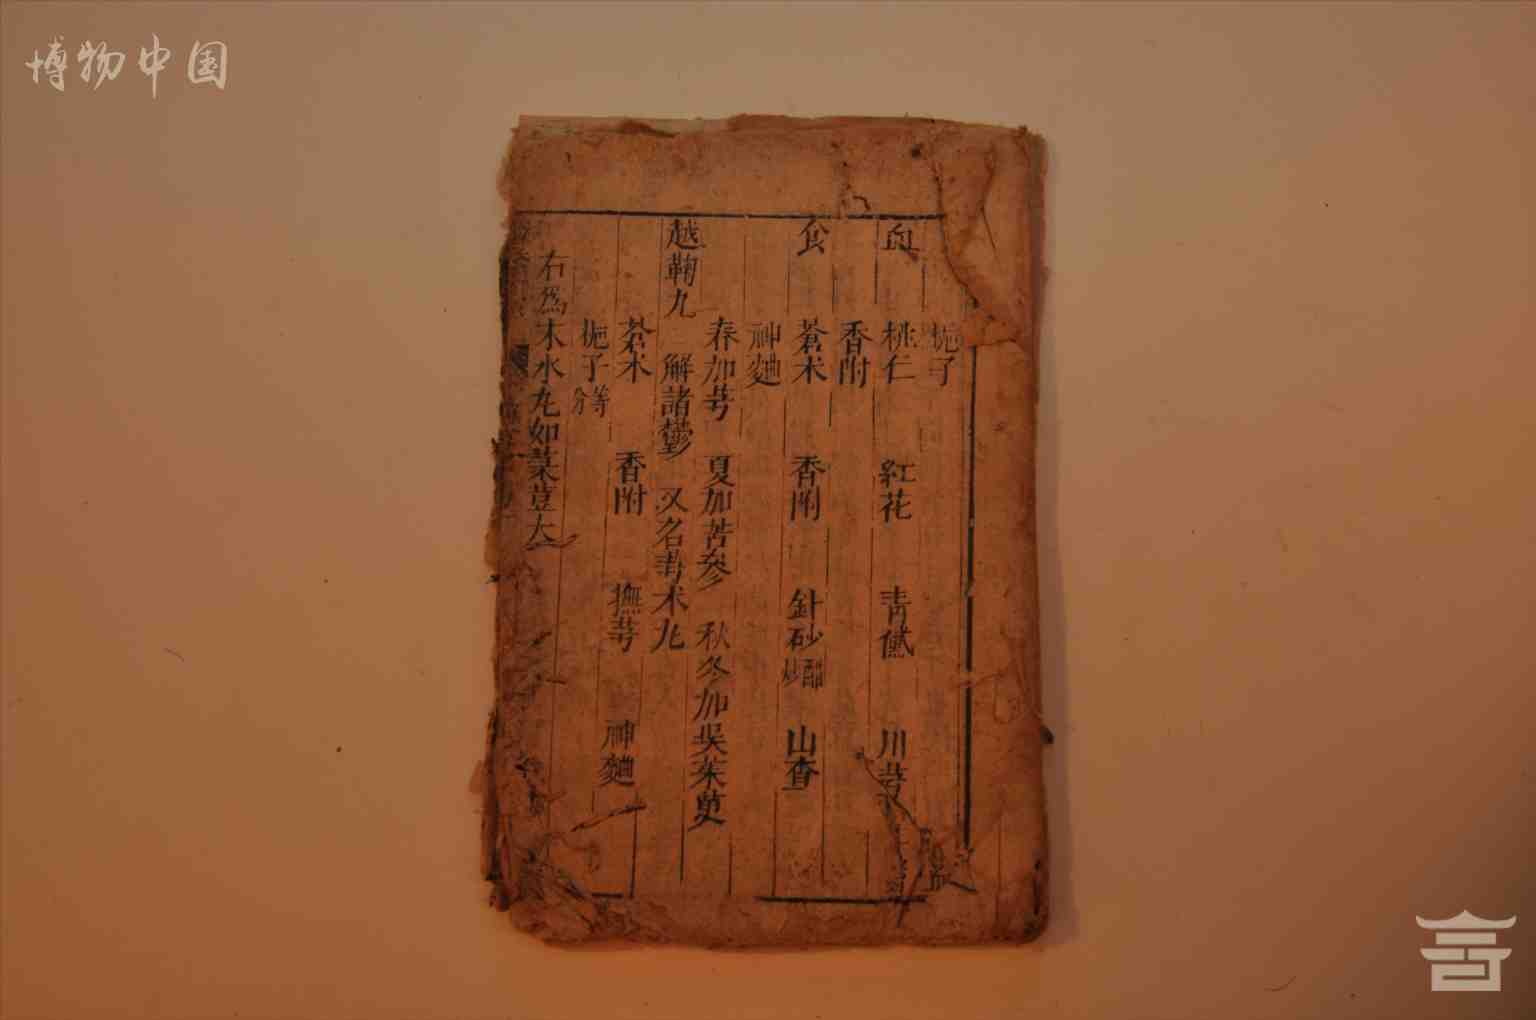 博物中国
梔子
血 桃仁 紅花 青黛 川芎
香附
食 蒼术 香附 針砂醋炒 山查
神麯
春加芎 夏加苦參 秋冬加吳茱萸
越鞠丸 解諸鬱 又名芎术丸
蒼术 香附 撫芎 神麯
梔子等分
右為末水丸如菉荳大